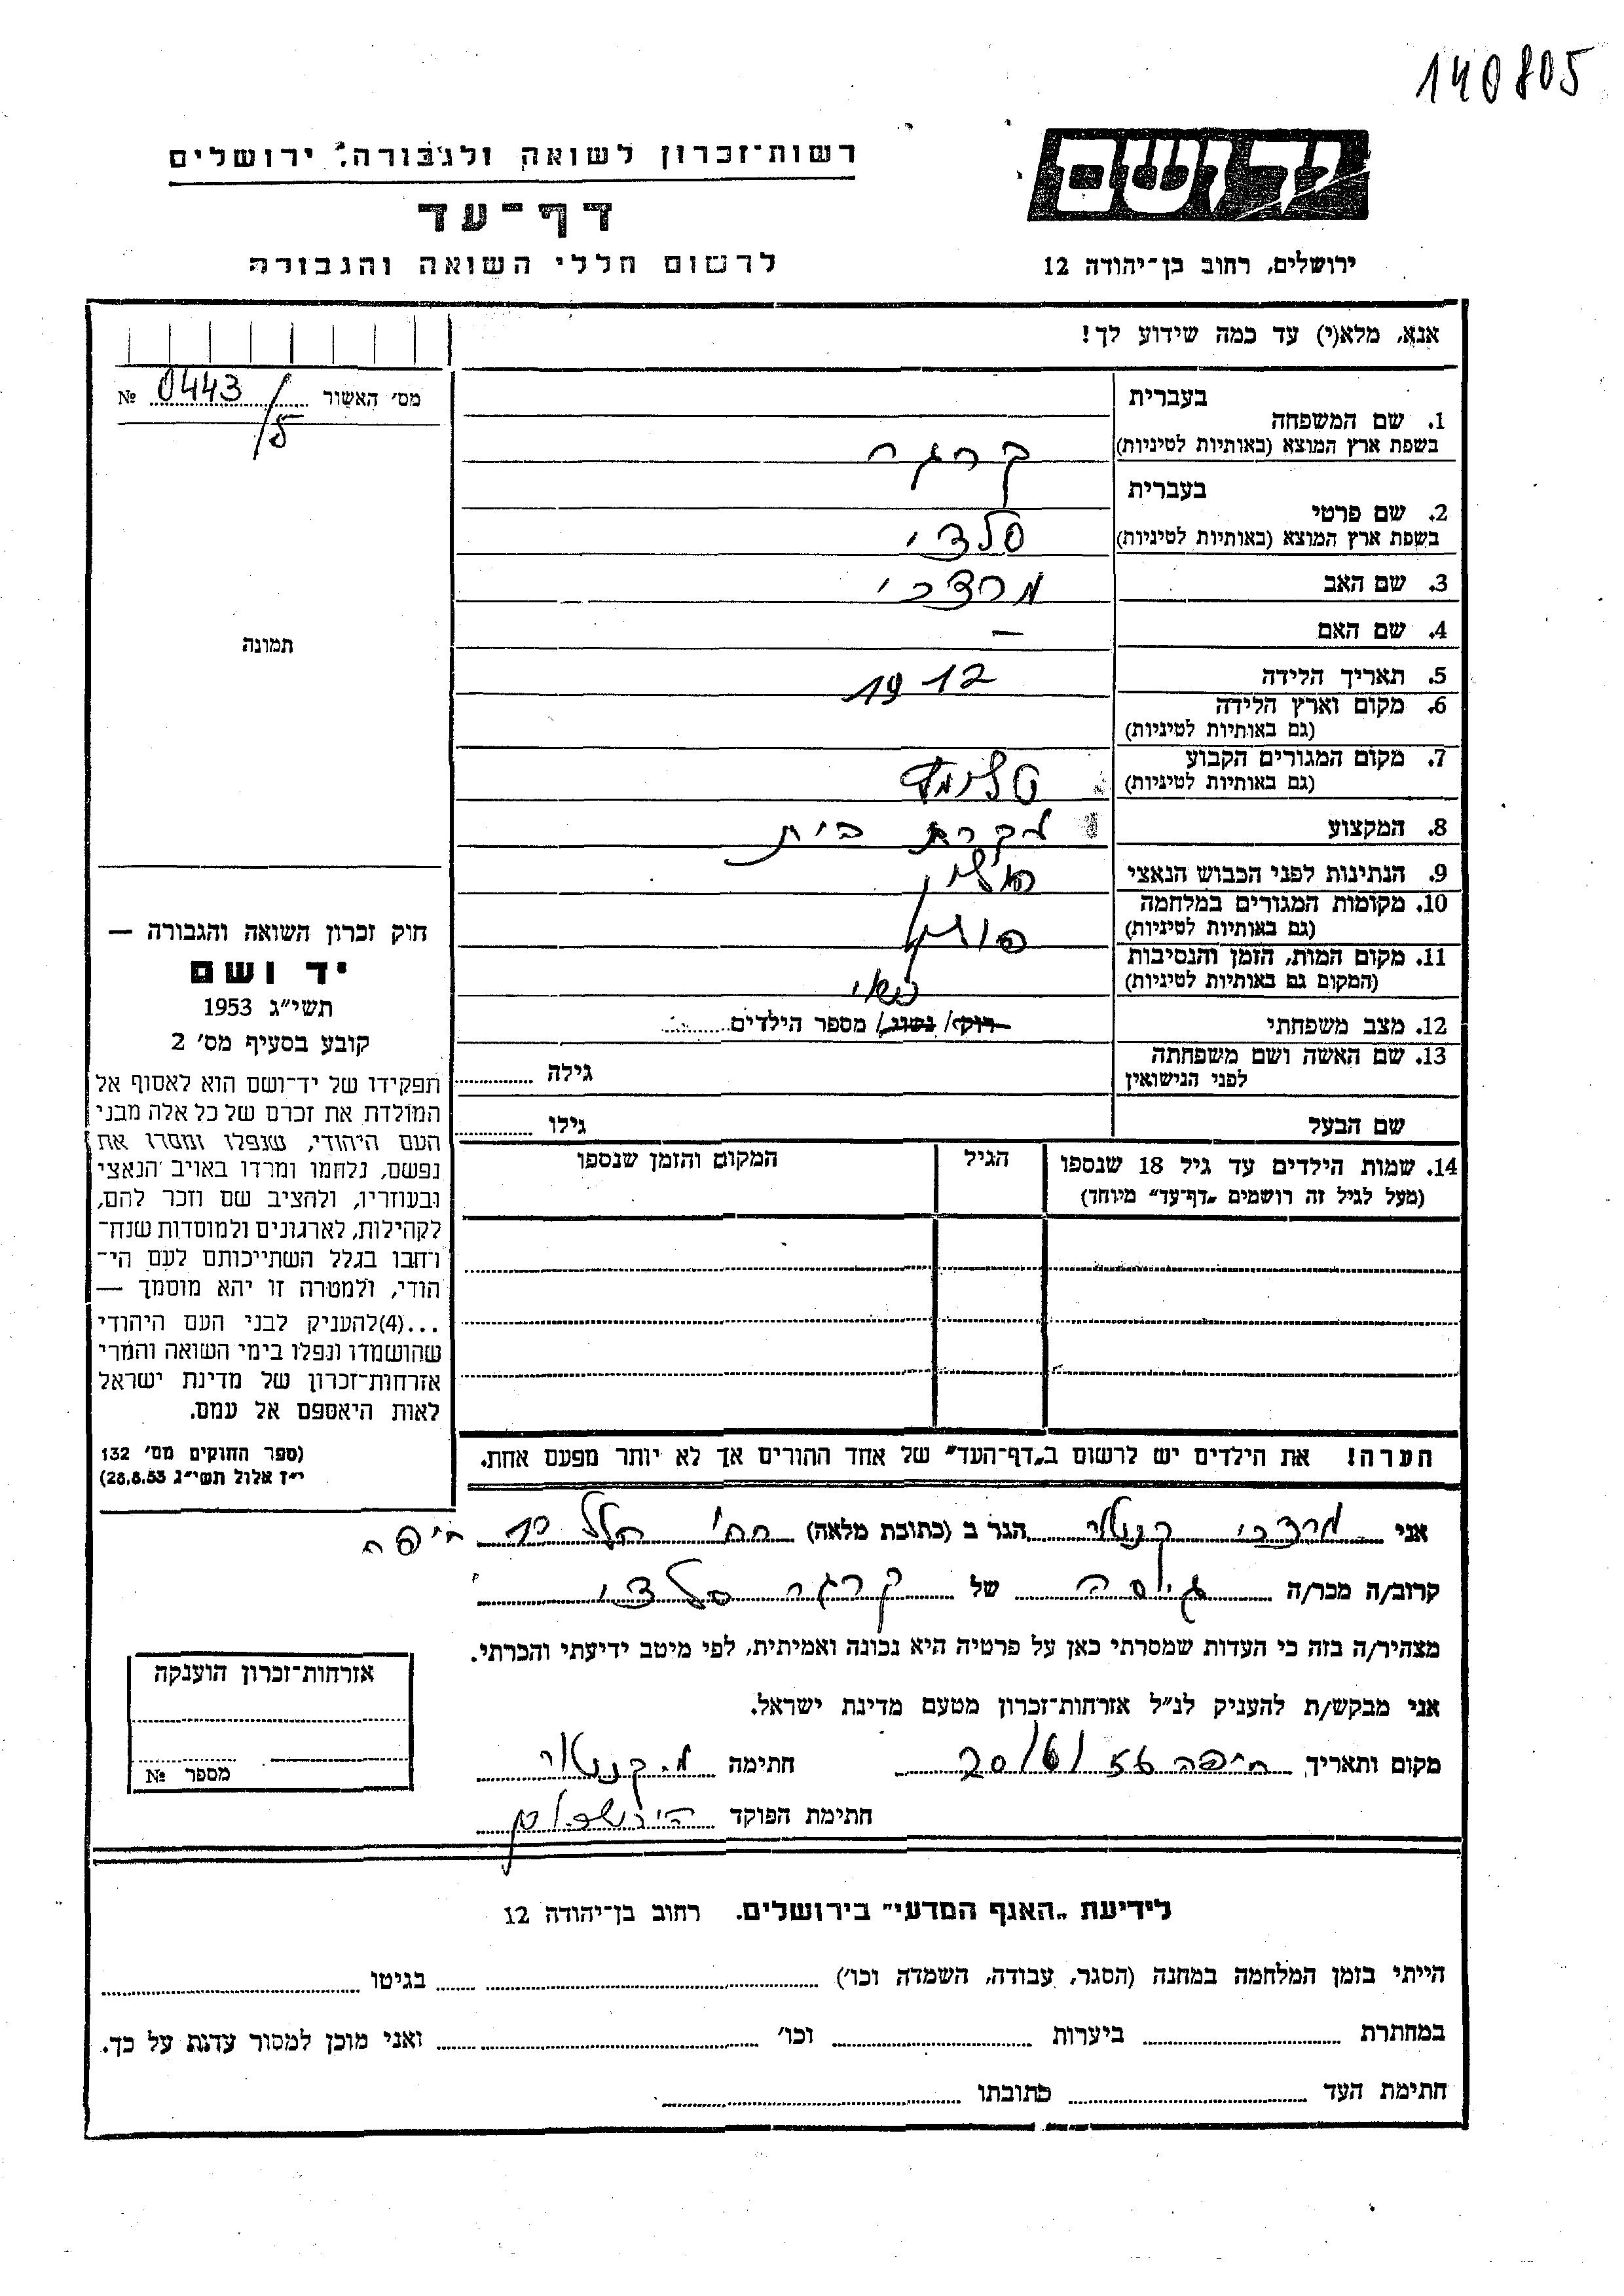 140805
יד ושם
רשות־זכרון לשואה ולגבורה, ירושלים
דף־עד
לרשום חללי השואה והגבורה
ירושלים, רחוב בן־יהודה 12
אנא, מלא(י) עד כמה שידוע לך!
מס׳ האשור 0443/5 №
תמונה
בעברית
1. שם המשפחה
בשפת ארץ המוצא (באותיות לטיניות)
קרגר
בעברית
2. שם פרטי
בשפת ארץ המוצא (באותיות לטיניות)
סלצי
3. שם האב מרדכי
4. שם האם —
5. תאריך הלידה 1912
6. מקום וארץ הלידה
(גם באותיות לטיניות)
7. מקום המגורים הקבוע
(גם באותיות לטיניות)
8. המקצוע עקרת בית
9. הנתינות לפני הכבוש הנאצי פולין
10. מקומות המגורים במלחמה
(גם באותיות לטיניות)
פולין
11. מקום המות, הזמן והנסיבות
(המקום גם באותיות לטיניות)
12. מצב משפחתי רוק/ נשוי/ מספר הילדים
13. שם האשה ושם משפחתה
לפני הנישואין
גילה
שם הבעל גילו
14. שמות הילדים עד גיל 18 שנספו
(מעל לגיל זה רושמים „דף־עד״ מיוחד)
הגיל
המקום והזמן שנספו
חוק זכרון השואה והגבורה —
יד ושם
תשי״ג 1953
קובע בסעיף מס׳ 2
תפקידו של יד־ושם הוא לאסוף אל
המולדת את זכרם של כל אלה מבני
העם היהודי, שנפלו ומסרו את
נפשם, נלחמו ומרדו באויב הנאצי
ובעוזריו, ולהציב שם וזכר להם,
לקהילות, לארגונים ולמוסדות שנח־
רבו בגלל השתייכותם לעם הי־
הודי, ולמטרה זו יהא מוסמך —
...(4)להעניק לבני העם היהודי
שהושמדו ונפלו בימי השואה והמרי
אזרחות־זכרון של מדינת ישראל
לאות היאספם אל עמם.
(ספר החוקים מס׳ 132
י״ז אלול תשי״ג 28.8.53)
הערה! את הילדים יש לרשום ב„דף־העד״ של אחד ההורים אך לא יותר מפעם אחת.
אני מרדכי קנטור הגר ב (כתובת מלאה) רח׳ הלל 10 חיפה
קרוב/ה מכר/ה גיסה של קרגר סלצי
מצהיר/ה בזה כי העדות שמסרתי כאן על פרטיה היא נכונה ואמיתית, לפי מיטב ידיעתי והכרתי.
אני מבקש/ת להעניק לנ״ל אזרחות־זכרון מטעם מדינת ישראל.
מקום ותאריך חיפה 20/6/56 חתימה מ. קנטור
חתימת הפוקד
אזרחות־זכרון הוענקה
מספר №
לידיעת „האגף המדעי״ בירושלים. רחוב בן־יהודה 12
הייתי בזמן המלחמה במחנה (הסגר, עבודה, השמדה וכו׳) בגיטו
במחתרת ביערות וכו׳ ואני מוכן למסור עדות על כך.
חתימת העד כתובתו